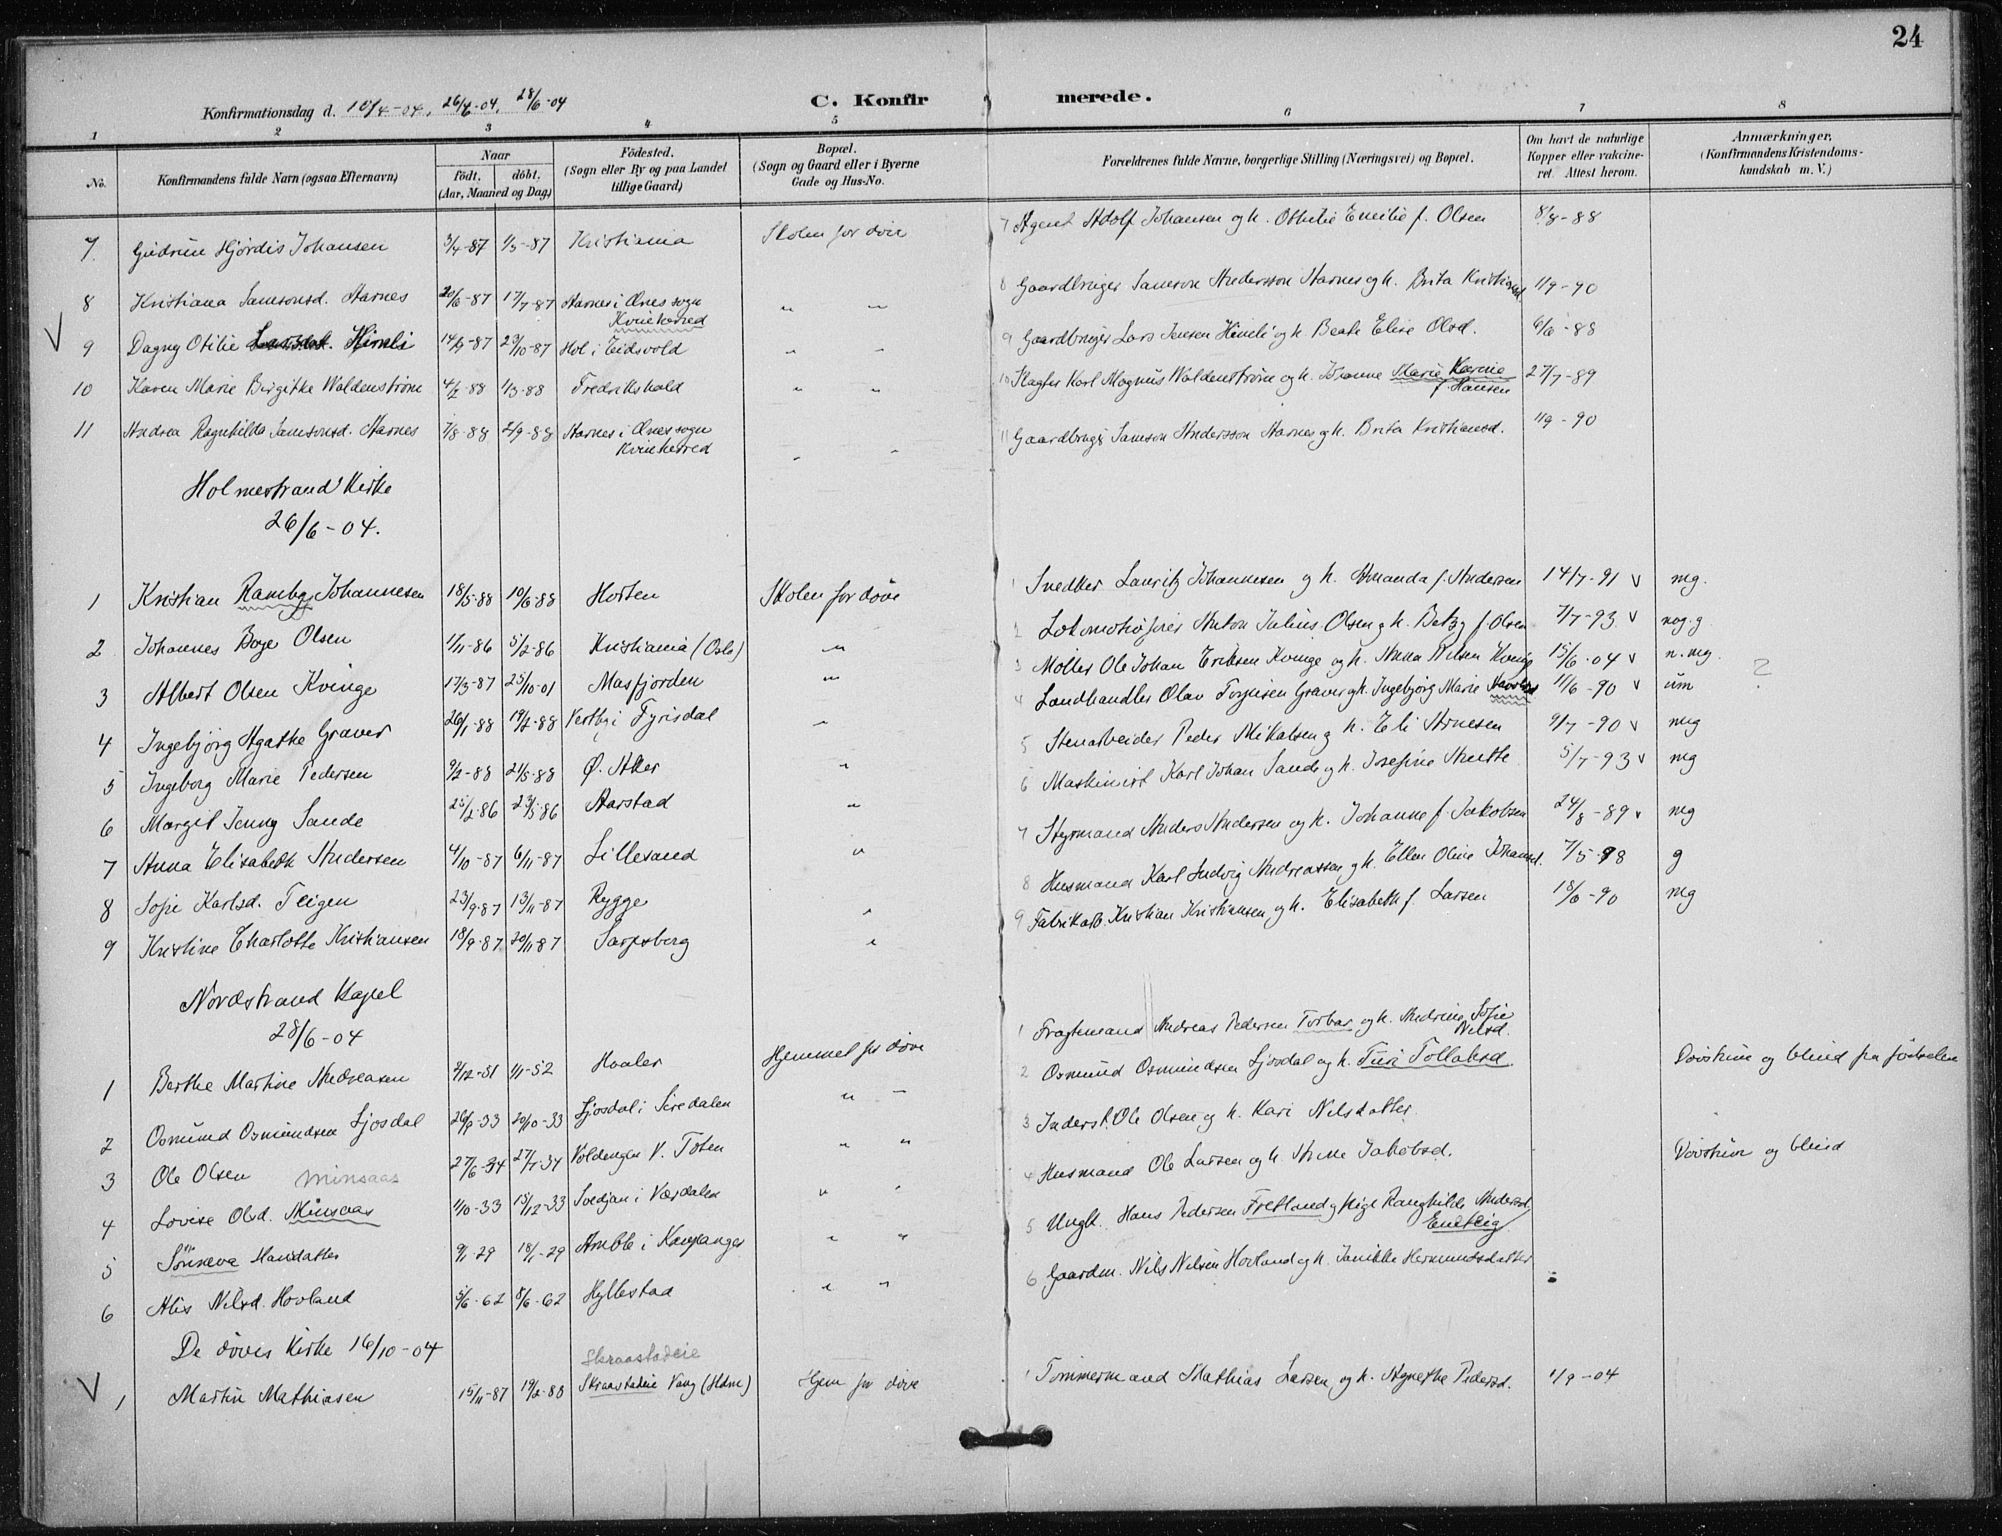 24
Konfirmationsdag d. 10/4-04, 26/6-04, 28/6-04
C. Konfirmerede.
1 2 3 4 5 6 7 8
No.
Konfirmandens fulde Navn (ogsaa Efternavn)
Naar
födt. döbt.
(Aar, Maaned og Dag)
Födested.
(Sogn eller By og paa Landet
tillige Gaard)
Bopæl.
(Sogn og Gaard eller i Byerne
Gade og Hus-No.
Forældrenes fulde Navne, borgerlige Stilling (Næringsvei) og Bopæl.
Om havt de naturlige
Kopper eller vakcine-
ret. Attest herom.
Anmærkninger.
(Konfirmandens Kristendoms-
kundskab m. V.)
7 Gudrun Hjördis Johansen 3/4-87 1/5-87 Kristiania Skolen for døve 7 Agent Adolf Johansen og h. Othilie Emilie f. Olsen 8/8-88
8 Kristiana Samsonsd. Aarnes 20/6-87 17/7-87 Aarnes i Ænes sogn Kvinherred " " 8 Gaardbruger Samson Andersson Aarnes og h. Brita Kristiansd 1/9-90
9 Dagny Otilie Larsdat. Himli 23/10-87 Hol i Eidsvold " " 9 Gaardbruger Lars Jensen Himli og h. Beate Elise Olsd. 6/6-88
10 Karen Marie Birgitte Waldenstrøm 4/2-88 1/3-88 Fredrikshald " " 10 Karl Magnus Waldenstrøm og h. Johanne Marie Karine f. Hansen 27/7-89
11 Andrea Ragnhilda Samsonsd. Aarnes 7/8-88 2/9-88 Aarnes i Ænes sogn Kvinherred " " 11 Gaardbruger Samson Andersson Aarnes og h. Brita Kristiansd. 1/9-90
Holmestrand Kirke
26/6-04.
1 Kristian Ramberg Johannesen 18/5-88 10/6-88 Horten Skolen for døve 1 Snedker Lauritz Johannesen og h. Amanda f. Andersen 14/7-91 v mg.
2 Johannes Boye Olsen 1/11-86 5/2-86 Kristiania (Oslo) " 2 Lokomotivfører Anton Julius Olsen og h. Betzy f. Olsen 7/7-93 v nog. g
3 Albert Olsen Kvinge 17/3-87 25/10-01 Masfjorden " 3 Møller Ole Johan Eriksen Kvinge og h. Anna Nilsen Kvinge 15/6-04 v n. mg.
4 Ingebjørg Agathe Graver 26/1-88 19/2-88 i Fyrisdal " 4 Landhandler Olav Torjusen Graver og h. Ingebjørg Marie 11/6-90 v um ?
5 Ingeborg Marie Pedersen 9/2-88 21/5-88 Ø. Aker " 5 Stenarbeider Peder Mikalsen og h. Eli Arnesen 9/7-90 v mg
6 Margit Jenny Sande 25/2-86 23/5-86 Aarstad " 6 Maskinist Karl Johan Sande og h. Josefine Anette 5/7-93 v mg
7 Anna Elisabeth Andersen 4/10-87 6/11-87 Lillesand " 7 Styrmand Anders Andersen og h. Johanne f. Jakobsen 24/8-89 v mg
8 Sofie Karlsd. Teigen 23/9-87 13/11-87 Rygge " 8 Husmand Karl Ludvig Andreassen og h. Ellen Oline Johansd. 7/5-98 g
9 Kristine Charlotte Kristiansen 18/9-87 20/11-87 Sarpsborg " 9 Fabrikarb. Kristian Kristiansen og h. Elisabeth f. Larsen 18/6-90 mg
Nordstrand Kapel
28/6-04
1 Berthe Martine Andreasen 2/12-51 1/1-52 Hvaler Hjemmet for døve 1 Fragtmand Andreas Pedersen Torbar og h. Andrine Sofie Nilsd.
2 Osmund Osmundsen Ljosdal 20/10-33 Ljosdal i Siredalen " " 2 Osmund Osmundsen Ljosdal og h. Turi Tollaksd. Døvstum og blind fra fødselen
3 Ole Olsen 27/6-34 27/7-34 V. Toten " " 3 Inderst Ole Olsen og h. Kari Nilsdatter.
minsaas
4 Lovise Olsd. Minsaas 1/10-33 15/12-33 Svedjan i Værdalen " " 4 Husmand Ole Larsen og h. Anne Jakobsd. Døvstum og blind
5 Sönneva Hansdatter 9/1-29 18/1-29 Amble i Kaupanger " " 5 Ungk. Hans Pedersen Fretland og Pige Ranghilde Andersd. Enetleig
6 Alis Nilsd. Hovland 5/6-62 8/6-62 Hyllestad " " 6 Gaardm. Nils Nilsen Hovland og h. Janikke Hermundsdatter
De døves Kirke 16/10-04
Skraastadeie
1 Martin Mathiasen 15/11-87 19/2-88 Skraastadeie Vang (Hdm) Hjem for døve 1 Tømmermand Mathias Larsen og h. Agnethe Pedersd. 1/9-04